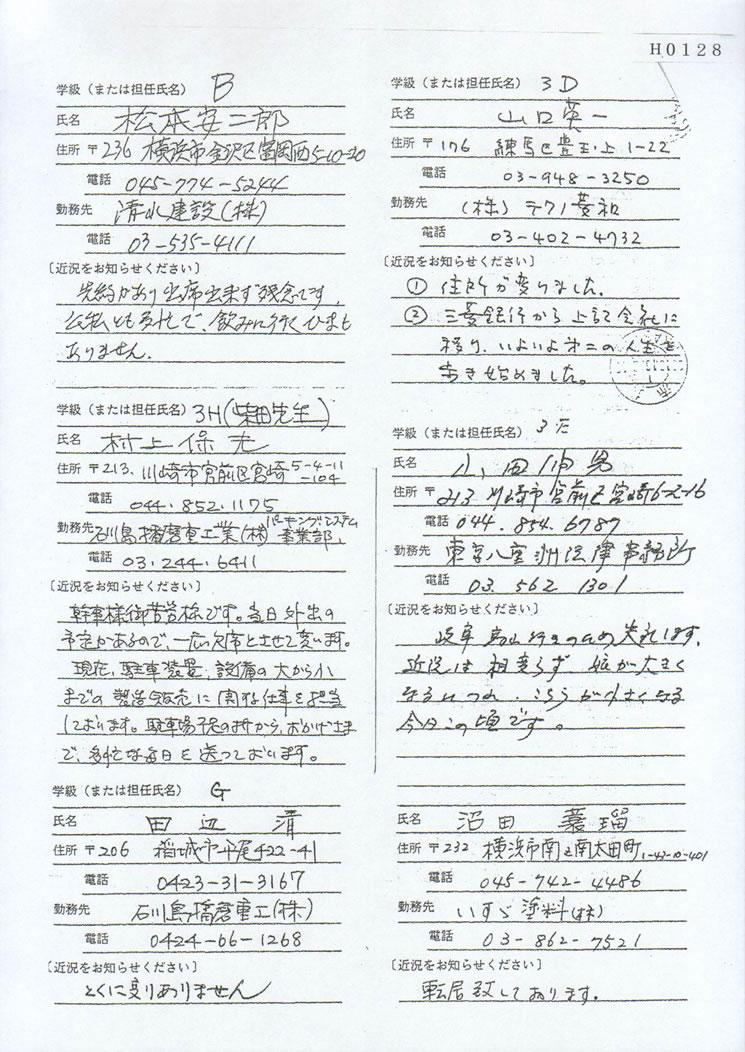 H0128
学級（または担任氏名） B
氏名 松本安二郎
住所 〒236 横浜市金沢区富岡西5-10-20
電話 045-774-5244
勤務先 清水建設(株)
電話 03-535-4111
〔近況をお知らせください〕
先約があり出席出来ず残念です。
公私とも多忙で、飲みに行くひまも
ありません。
学級（または担任氏名） 3H(柴田先生)
氏名 村上保
住所 〒213. 川崎市宮前区宮崎5-4-11-104
電話 044.852.1175
勤務先 石川島播磨重工業(株)パーキングシステム事業部
電話 03.244.6411
〔近況をお知らせください〕
幹事様御苦労様です。当日外出の
予定があるので、一応欠席とさせて貰います。
現在、駐車装置、設備の大から小
までの製造販売に関する仕事を担当
しております。駐車場不足の時から、おかげさま
で、多忙な毎日を送っております。
学級（または担任氏名） G
氏名 田辺 清
住所 〒206 稲城市平尾422-41
電話 0423-31-3167
勤務先 石川島播磨重工(株)
電話 0424-66-1268
〔近況をお知らせください〕
とくに変りありません
学級（または担任氏名） 3D
氏名 山口英一
住所 〒176 練馬区豊玉上1-22
電話 03-948-3250
勤務先 (株)テクノ菱和
電話 03-402-4732
〔近況をお知らせください〕
① 住所が変りました。
② 三菱銀行から上記会社に
移り、いよいよ第二の人生を
歩き始めました。
学級（または担任氏名） 3E
氏名 山田伸男
住所 〒213 川崎市宮前区宮崎6-2-16
電話 044.854.6787
勤務先 東京八重洲法律事務所
電話 03.562 1301
〔近況をお知らせください〕
岐阜高山行きのため失礼します。
近況は相変らず 娘が大きく
なるにつれ、こちらが小さくなる
今日この頃です。
氏名 沼田
住所 〒232 横浜市南区南太田町1-43-10-401
電話 045-742-4486
勤務先 いすゞ塗料(株)
電話 03-862-7521
〔近況をお知らせください〕
転居致しております。